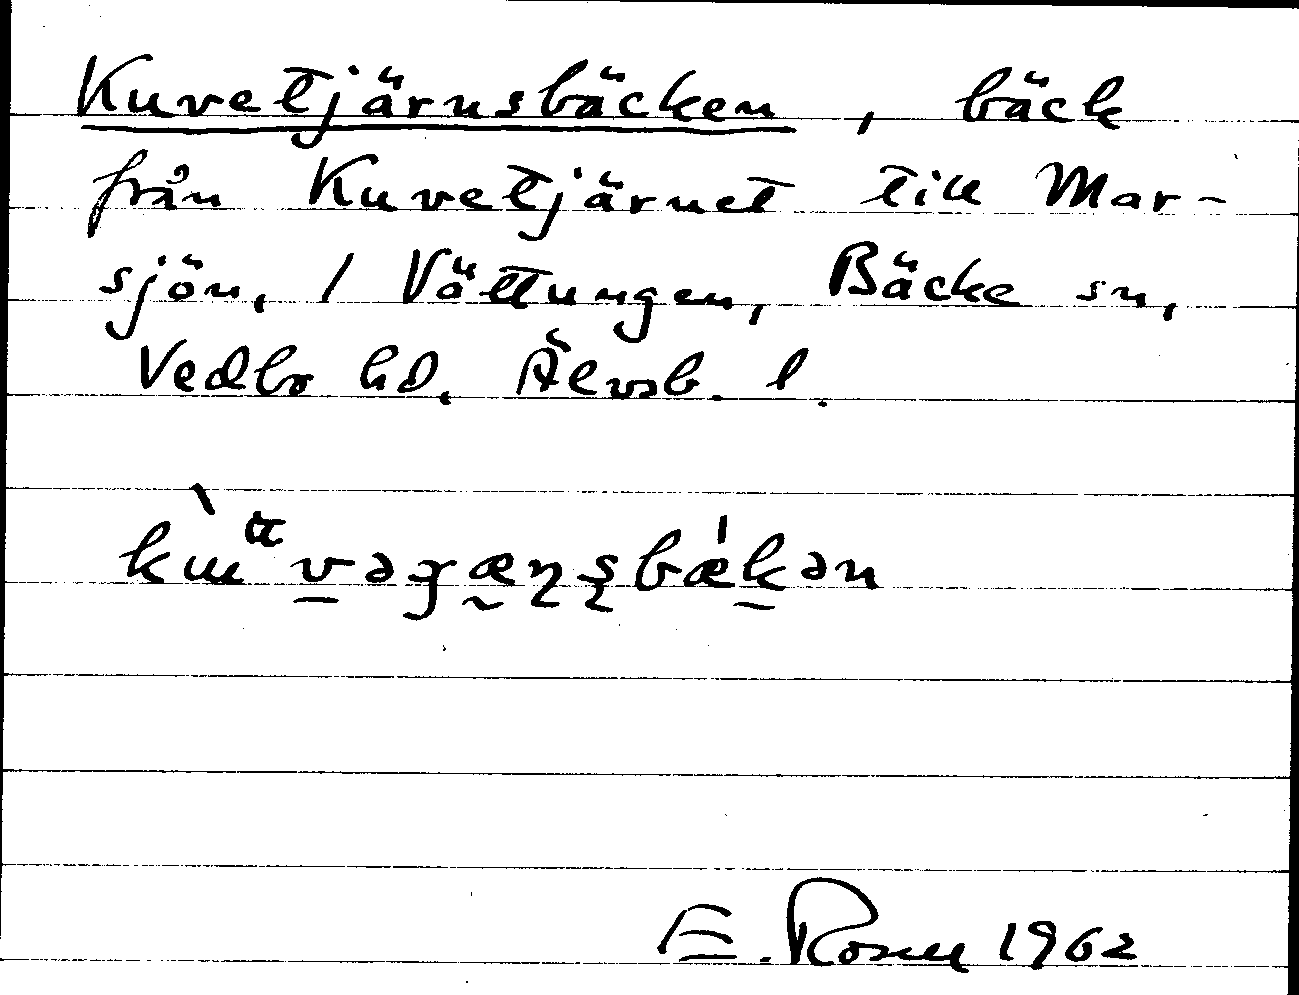 Kuvetjärnsbäcken, bäck
från Kuvetjärnet till Mar-
sjön, / Vättungen, Bäcke sn,
Vedbo hd. Älvsb. l.
E. Rosell 1962